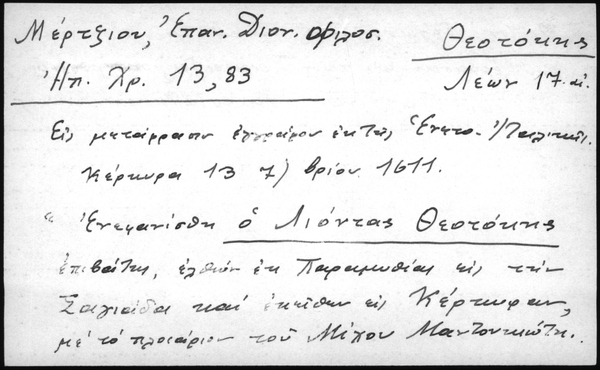 Μέρτζιου, Ἐπαν. Διον. φιλοσ.
Θεοτόκης
Ἠπ. Χρ. 13, 83
Λέων 17 αἰ.
Εἰς μετάφρασιν ἐγγράφου ἐκ τῆς Ἑνετο-Ἰταλικῆς.
Κέρκυρα 13 7)βρίου 1611.
"Ἐνεφανίσθη ὁ Λιόντας Θεοτόκης
ἐπιβάτης, ἐλθών ἐκ Παραμυθίας εἰς τήν
Σαγιάδα καί ἐκεῖθεν εἰς Κέρκυραν,
μέ τό πλοιάριον τοῦ Μίχου Μαντουκιώτη.